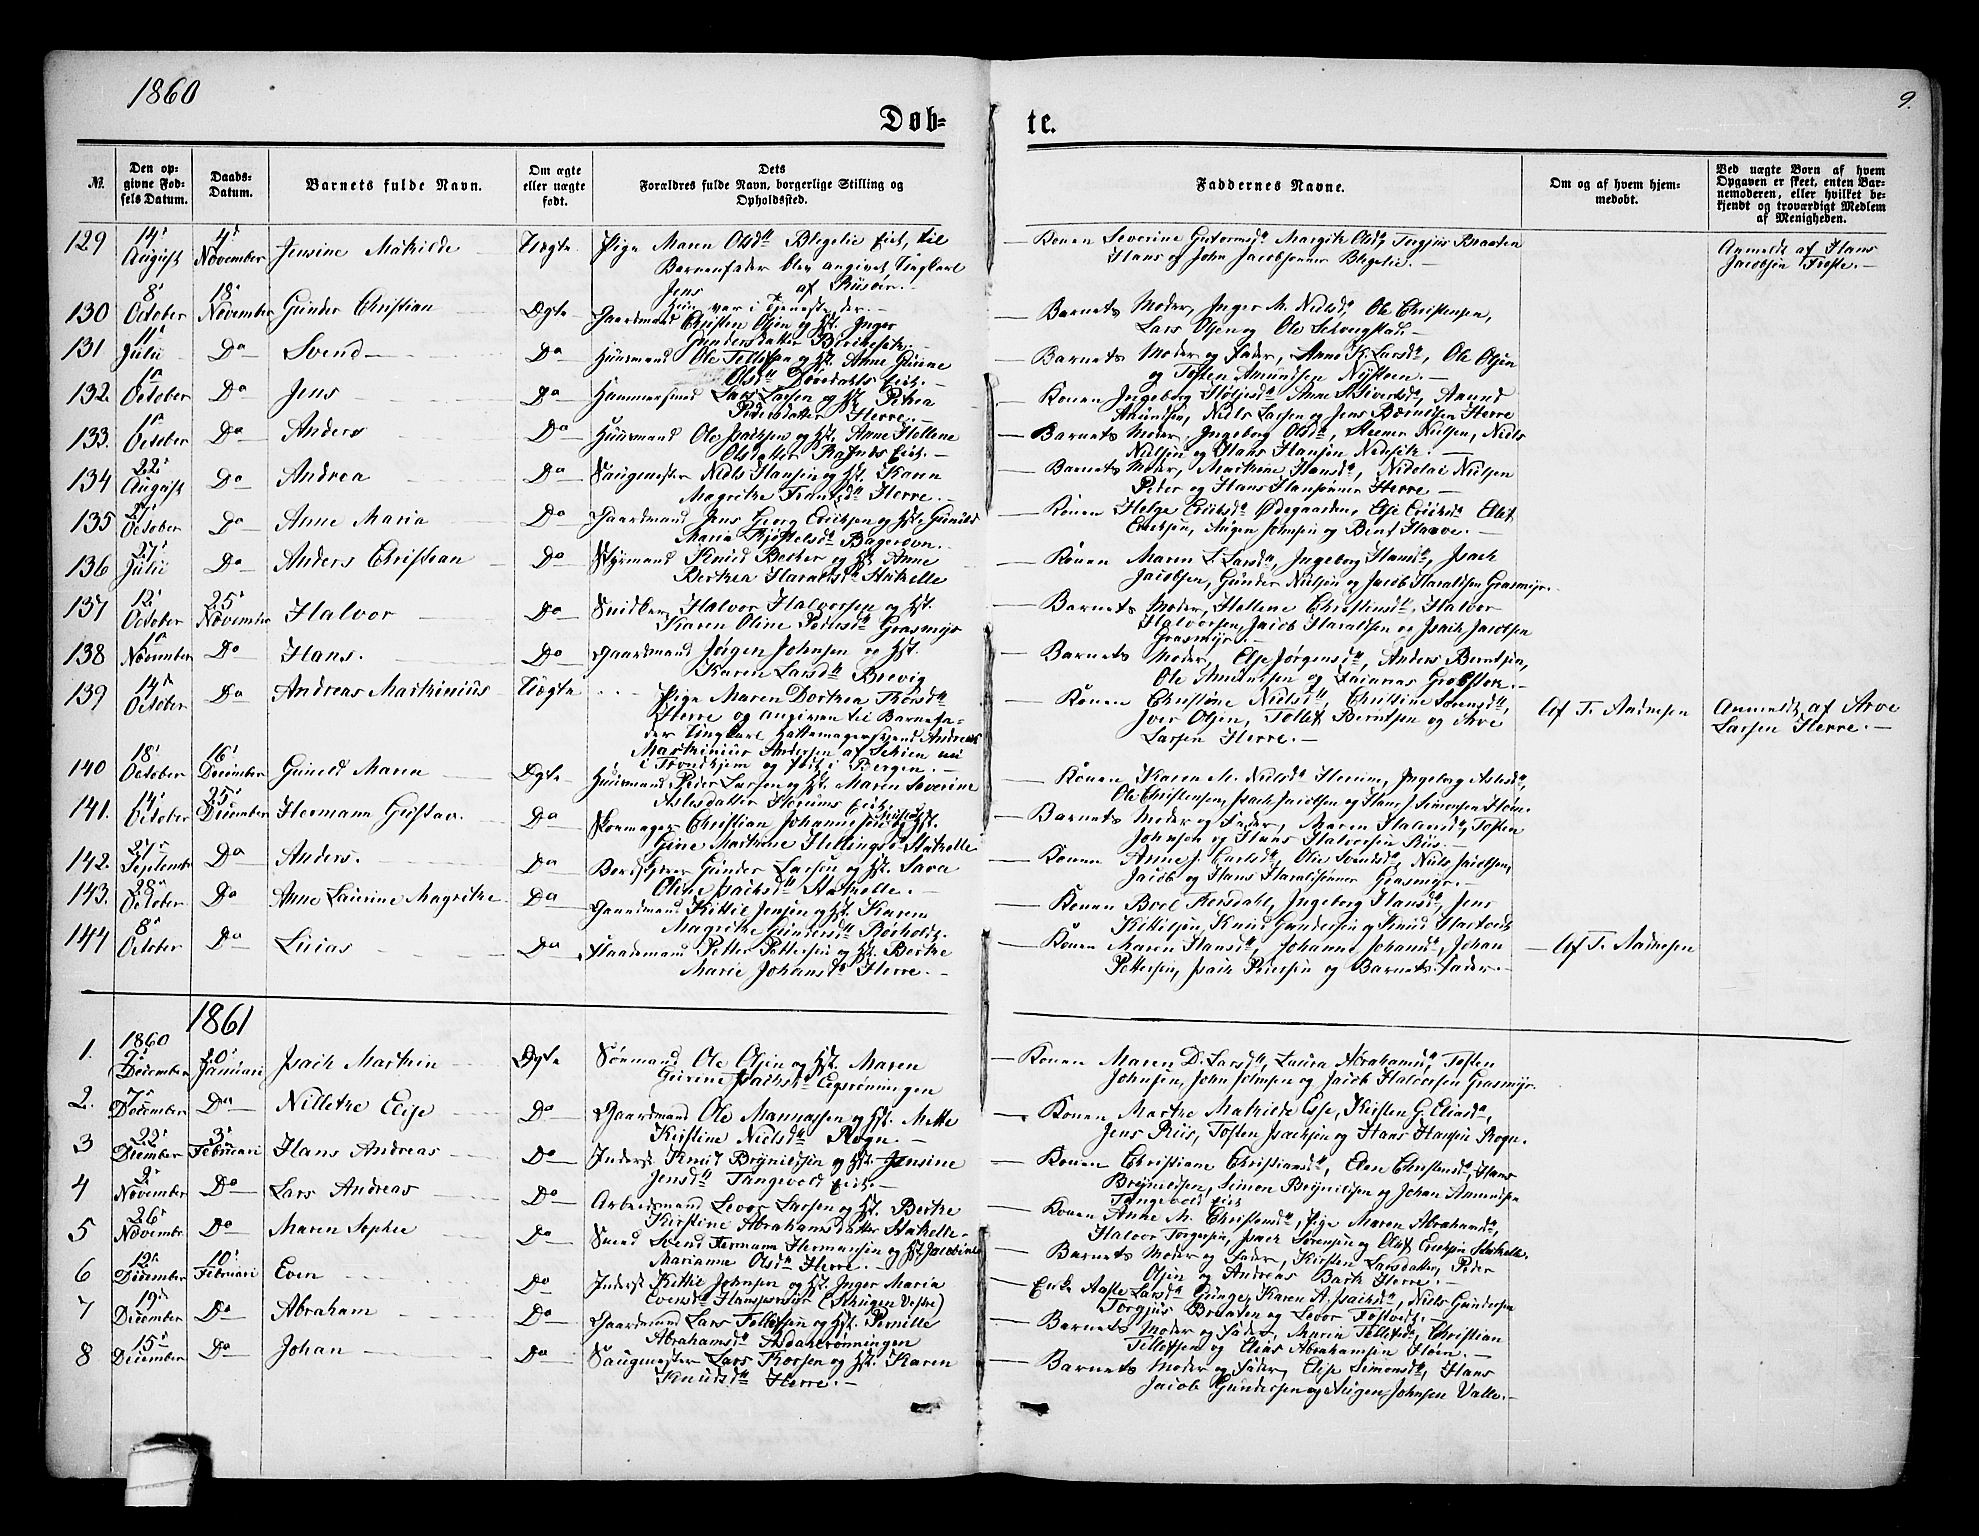 1860
9.
Døb-
te.
№.
Den op-
givne Fød-
sels Datum.
Daabs-
Datum.
Barnets fulde Navn.
Om ægte
eller uægte
født.
Dets
Forældres fulde Navn, borgerlige Stilling og
Opholdssted.
Faddernes Navne.
Om og af hvem hjem-
medøbt.
Ved uægte Børn af hvem
Opgaven er skeet, enten Bar-
nemoderen, eller hvilket be-
kjendt og troværdigt Medlem
af Menigheden.
129 14 August 4 November Jensine Mathilde Uægte Pige Maren Olsd. Blegelie Eiet, til
Barnefader blev angivet Ungkarl
Jens af Risøer.
Konen Severine Gutormsd. Margith Olsd. Torgius Braaten
Hans og John Jacobsønner Blegelie.
Anmeldt af Hans
Jacobsen Trosle.
130 8 October 18 November Gunder Christian Ægte Gaardmand Christen Olsen og H. Inger
Gundersdatter
Barnets Moder, Inger M. Nielsd. Ole Christensen,
Lars Olsen og Ole
131 11 Julii Do Svend Do Huusmand Ole Tellefsen og H. Anne Gurine
Olsd. Dørdahls Eiet.
Barnets Moder og Fader, Anne K. Larsd. Ole Olsen
og Tosten Amundsen Nysteen.
132. October Do Jens Do Hammersmed Lars Larsen og H. Petrea
Pedersdatter Herre.
Konen Ingeborg Anne Siversd. Amund
Amundsen, Niels Larsen og Jens Bærntsen Herre
133. October Do Anders Do Huusmand Ole Isachsen og H. Anne Hellene
Olsdatter Rafnæs Eiet.
Barnets Moder, Ingeborg Olsd. Steener Nielsen, Niels
Nielsen og Hans Hansen
134 22 August Do Andrea Do Saugmester Niels Hansen og H. Karen
Magrethe Herre.
Barnets Moder, Marthine Hansd. Nicolai Nielsen
Peder og Hans Hansønner Herre
135 October Do Anne Maria Do Gaardmand Jens Georg Ericksen og H. Gunild
Maria Kjøstelsd. Bagerovn.
Konen Helge Ericksd. Ødegaarden, Else Ericksd. Olet
Ericksen, Augen Johnsen og Bent
136 27 Julii Do Anders Christian Do Styrmand Knud Becker og H. Anne
Berthea Haraldsd. Stathelle
Konen Maren L. Larsd. Ingeborg Hansd. Isach
Jacobsen, Gunder Nielsen og Jacob Haraldsen Grasmyr.
137 12 October 25 November Halvor Do Snidker Halvor Halvorsen og H.
Karen Oline Pedersd. Grasmyr
Barnets Moder, Hellene Christiansd. Halvor
Halvorsen, Jacob Haraldsen og Isach Jacobsen
Grasmyr.
138 November Do Hans. Do Gaardmand Jørgen Johnsen og H.
Karen Larsd. Brevig
Barnets Moder, Else Jørgensd. Anders Berntsen,
Ole Amundsen og Zacarias Grobstok.
139 14 October Do Andreas Marthinius Uægte Pige Maren Dorthea Thorsd.
Herre og angiven til Barnefa-
der Ungkarl Hattemagersvend Andreas
Marthinius Andersen af Schien nu
i Trondhjem og sist i Bergen.
Konen Christine Nielsd. Christine Sørensd.
Iver Olsen, Tollef Berntsen og Arve
Larsen Herre.
Af T. Aadnesen
Anmeldt af Arve
Larsen Herre.
140 18 October 16 December Gunild Maren Ægte Huusmand Peder Larsen og H. Maren Severine
Aslesdatter Herums Eiet.
Konen Karen M. Nielsd. Herum, Ingeborg Aslesd.
Ole Christensen, Isach Jacobsen og Hans J. Simonsen
141. 14 October 25 December Hermann Gustav. Do Skomager Christian Johannesen og H.
Gine Marthine Stathelle
Barnets Moder og Fader, Maren Halvorsd. Tosten
Johnsen og Hans Halvorsen Riis.
142. 27 September Do Anders. Do Gunder Larsen og H. Sara
Oline Isachsd. Stathelle.
Konen Anne J. Carlsd. Olie Svendsd. Niels Jacobsen,
Jacob og Hans Haraldsønner Grasmyr.
143. 28 October Do Anne Laurine Magrethe Do Gaardmand Kittil Jensen og H. Karen
Magrethe Gundersd. Rørholt.
Konen Boel Aersdahl, Ingeborg Hansd. Jens
Kittilsen, Knud Gundersen og Knud
144 8 October Do Lucas Do Petter Pettersen og H. Berthe
Marie Johansd. Herre.
Konen Maren Hansd. Johanne Johansd. Johan
Pettersen, Isach og Barnets Fader.
Af T. Aadnesen
1861
1. 1860 9 December 20 Januari Isach Marthin Ægte Sømand Ole Olsen og H. Maren
Gurine Isachsd.
Konen Maren D. Larsd. Laura Abrahamsd. Tosten
Johnsen, John Johnsen og Jacob Halvorsen Grasmyr.
2. 7 December Do Nillethe Elise Do Gaardmand Ole Mannassen og H. Mette
Kirstine Nielsd. Rogn.
Konen Marthe Mathilde Kirsten G. Eliasd.
Jens Riis, Tosten Isachsen og Hans Hansen Rogn.
3 22 December 3 Februari Hans Andreas Do Inderst Knud Brynildsen og H. Jensine
Jensd. Tangevold Eiet.
Konen Christiane Christiansd. Elen Christensd. Hans
Brynildsen, Simon Brynildsen og Johan Amundsen
Tangevold Eiet
4 2 November Do Lars Andreas Do Arbeidsmand Levor Larsen og H. Berthe
Kirstine Abrahamsdatter Stathelle.
Konen Anne M. Christensd. Pige Maren Abrahamsd.
Halvor Torgersen, Isach Sørensen og Oluf Ericksen Stathelle.
5 26 November Do Maren Sophie Do Smed Svend Hermann Hermansen og H. Jacobine
Marianne Olsd. Herre.
Barnets Moder og Fader, Kirsten Larsdatter, Peder
Olsen og Andreas Bach Herre.
6 12 December 10 Februari Even Do Inderst Kittil Johnsen og H. Inger Maria
Evensd. (Skugen Vestre)
Enke Aaste Larsd. Karen A. Isachsd. Niels Gundersen
Torgius Braaten og Levor Tostvedt.
7 19 December Do Abraham Do Gaardmand Lars Tellefsen og H. Pernille
Abrahamsd.
Barnets Moder og Fader, Maria Tellefsd. Christian
Tellefsen og Elias Abrahamsen
8 15 December Do Johan Do Saugmester Lars Thorsen og H. Karen
Knudsd. Herre.
Barnets Moder og Fader, Else Simonsd. Hans
Jacob Gundersen og Augen Johnsen Valle.